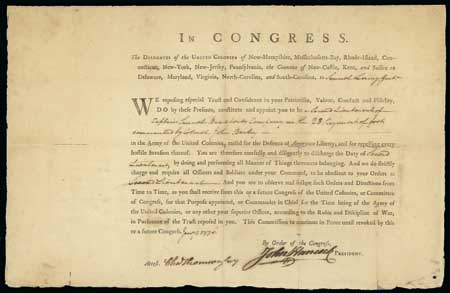 IN CONGRESS.
The DELEGATES of the UNITED COLONIES of New-Hampshire, Massachusetts-Bay, Rhode-Island, Con-
necticut, New-York, New-Jersey, Pennsylvania, the Counties of New-Castle, Kent, and Sussex on
Delaware, Maryland, Virginia, North-Carolina, and South-Carolina, to Samuel
WE reposing especial Trust and Confidence in your Patriotism, Valour, Conduct and Fidelity,
DO by these Presents, constitute and appoint you to be a Second Lieutenant of
Captain Samuel Company in the Regiment of foot
commanded by Colonel John
in the Army of the United Colonies, raised for the Defence of American Liberty, and for repelling every
hostile Invasion thereof. You are therefore carefully and diligently to discharge the Duty of Second
Lieutenant by doing and performing all Manner of Things thereunto belonging. And we do strictly
charge and require all Officers and Soldiers under your Command, to be obedient to your Orders as
Second Lieutenant And you are to observe and follow such Orders and Directions from
Time to Time, as you shall receive from this or a future Congress of the United Colonies, or Committee
of Congress, for that Purpose appointed, or Commander in Chief for the Time being of the Army of
the United Colonies, or any other your superior Officer, according to the Rules and Discipline of War,
in Pursuance of the Trust reposed in you. This Commission to continue in Force until revoked by this
or a future Congress. 1776
By Order of the Congress,
John Hancock PRESIDENT.
Attest. Cha Thomson Secy